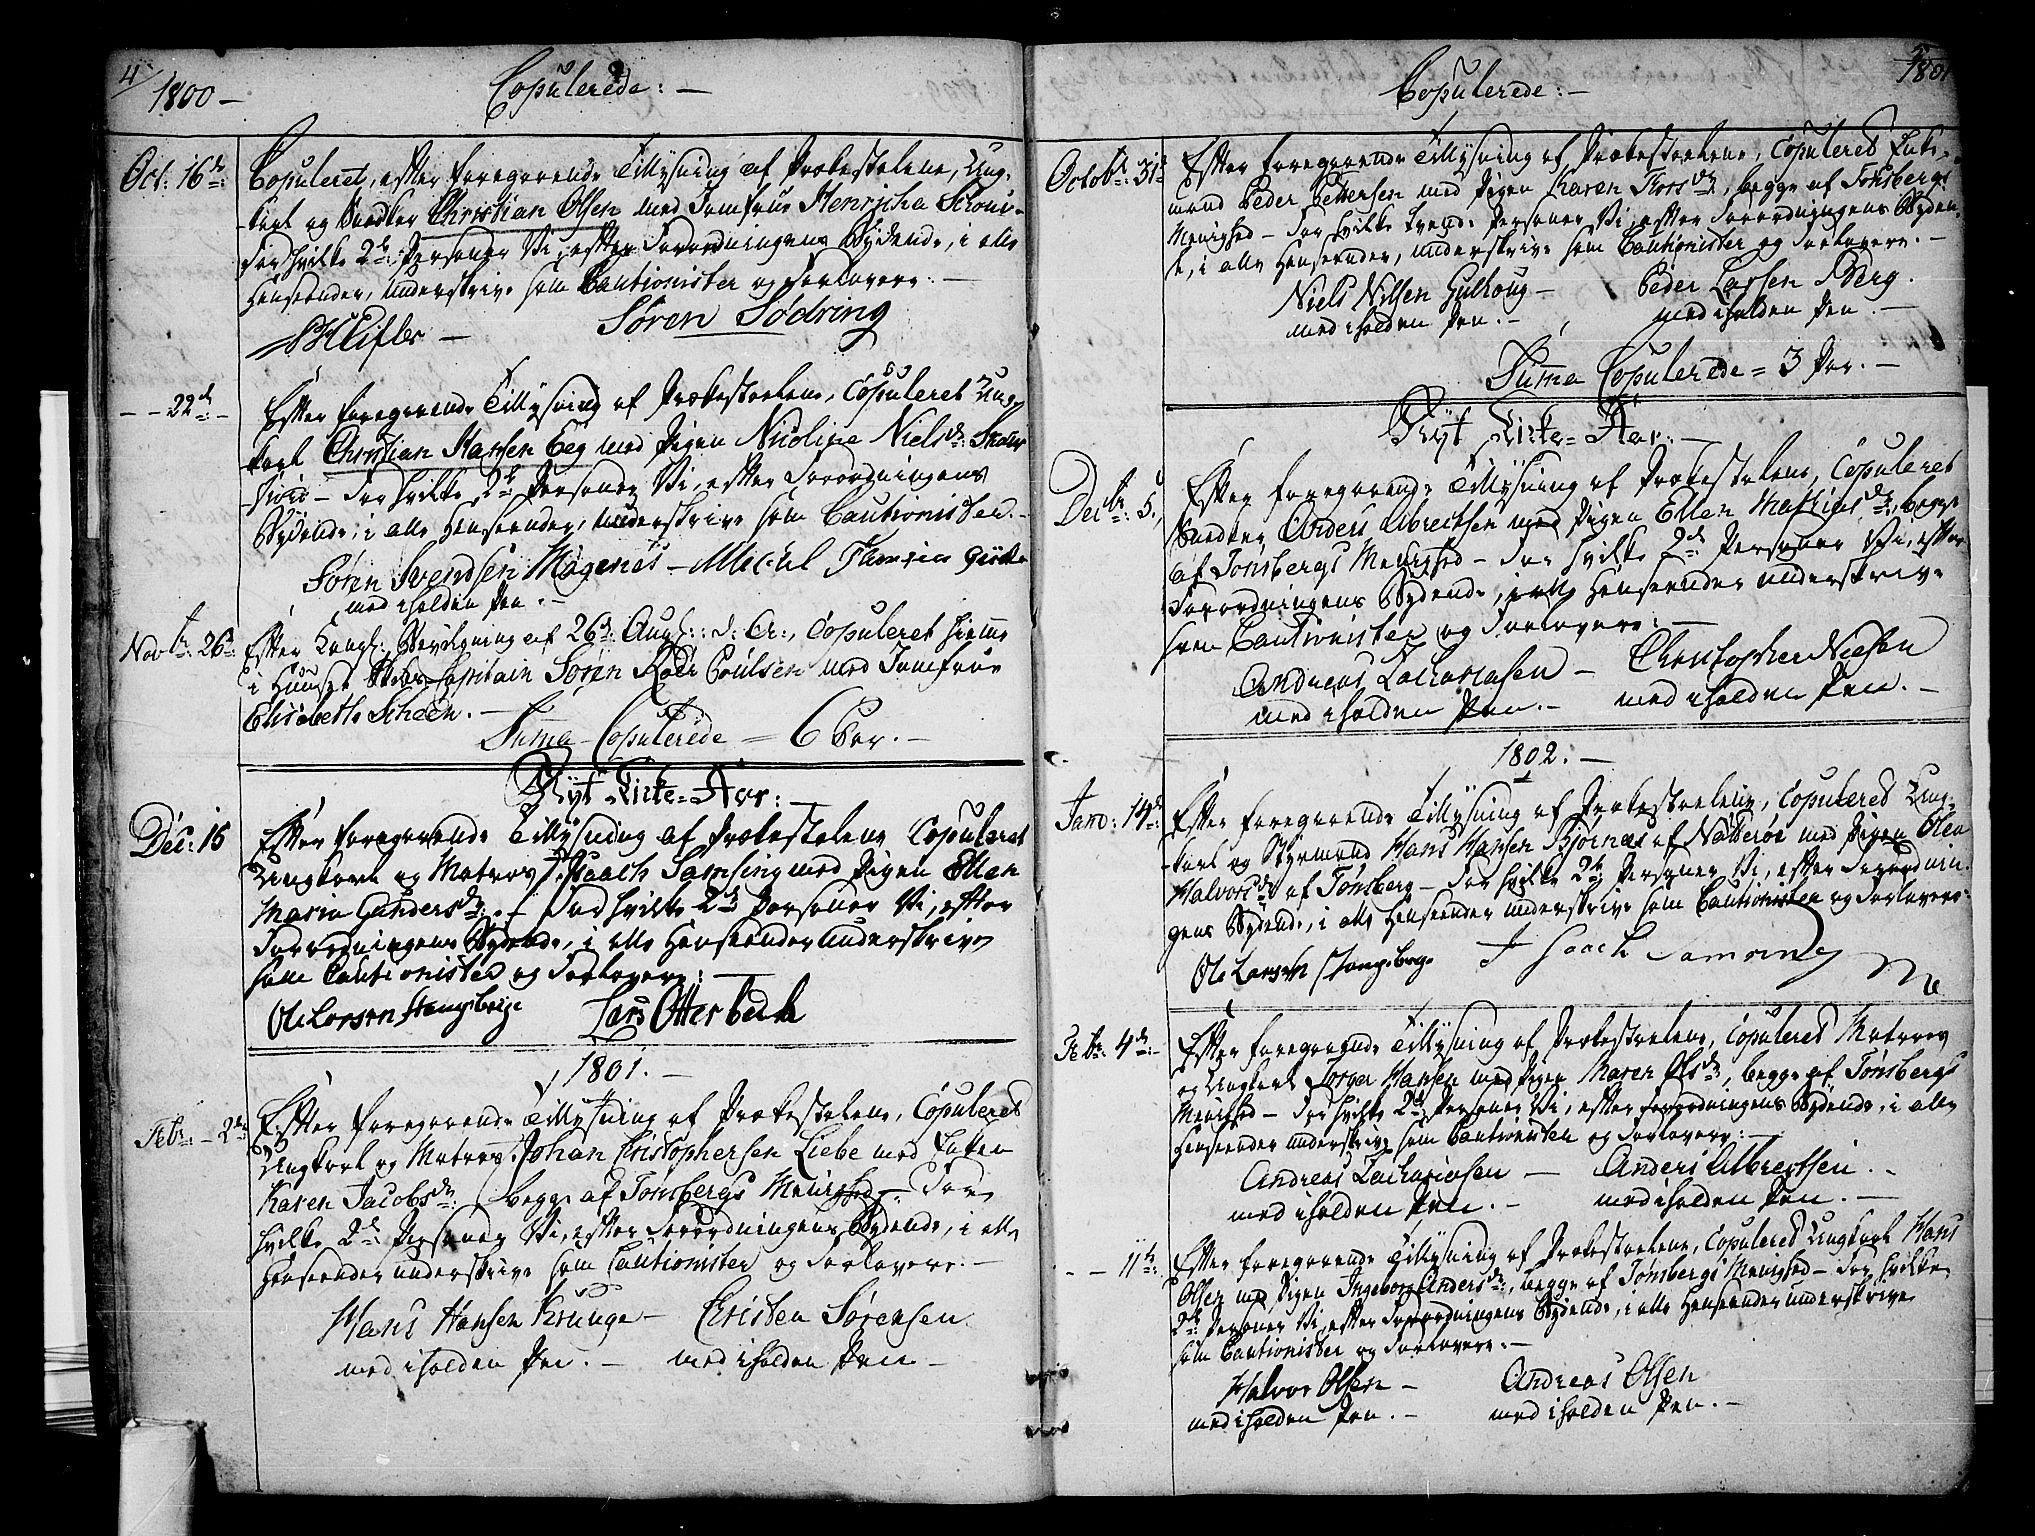 4
1800 –
Copulerede: –
Oct: 16de
Copuleret, efter foregaaende Tillysning af Prækestolene, Ung-
karl og Bødker Christian Olsen med Jomfrue Henricha
For hvilke 2de Personer Vi, efter Forordningens Bydende, i alle
Henseender, underskrive som Cautionister og Forlovere: –
Søren Södring
– – 22de –
Efter foregaaende Tillysning af Prækestolene, Copuleret Ung-
karl Christian Hansen Eeg med Pigen Nicoline Nielsdr:
– For hvilke 2de Personer Vi, efter Forordningens
Bydende, i alle Henseender, underskrive som Cautionister. –
Sören Svendsen Magenes – Thomsen
med iholden Pen. –
Novbr: 26de
Efter Kongl: Bevilgning af 26de Aug: d: A:, Copuleret hiemme
i Huuset Capitain Sören Röer Poulsen med Jomfrue
Elisabeth Scheen. –
Suma Copulerede = 6 Par. –
Nÿt Kirke-Aar: –
Dec: 15
Efter foregaaende Tillysning af Prækestolene Copuleret
Ungkarl og Matros Isaach Samsing med Pigen Ellen
Maria Gundersdr: – For hvilke 2de Personer Vi, efter
Forordningens Bydende, i alle Henseender underskrive
som Cautionister og Forlovere: –
Ole Larsen Stangeberge Lars Otterbech
1801. –
Febr: – 2de
Efter foregaaende Tillysning af Prækestolene, Copuleret
Ungkarl og Matros Johan Christophersen Liebe med Enken
Karen Jacobsdr: begge af Tönsbergs Menighed – For
hvilke 2de Personer Vi, efter Forordningens Bydende, i alle
Henseender underskrive som Cautionister og Forlovere. –
Hans Hansen Krunge – Christen Sörensen
med iholden Pen. – med iholden Pen –
5
1801
Copulerede: –
Octobr: 31te
Efter foregaaende Tillysning af Prækestolene, Copulered Enke-
mand Peder Pettersen med Pigen Karen Thorsdr:, begge af Tönsbergs
Menighed – For hvilke tvende Personer Vi, efter Forordningens Byden-
de, i alle Henseender, underskrive som Cautionister og Forlovere. –
Niels Nilsen Gulhoug – Peder Larsen Berg.
med iholden Pen. – med iholden Pen. –
Suma Copulerede = 3 Par. –
Nÿt Kirke-Aar: –
Decbr: 5.
Efter foregaaende Tillysning af Prækestolene, Copuleret
Bødker Anders Albrectsen med Pigen Ellen Mathiasdr:, begge
af Tönsbergs Menighed – For hvilke 2de Personer Vi, efter
Forordningens Bydende, i alle Henseender underskrive
som Cautionister og Forlovere: –
Andreas Zachariasen – Christopher Nielsen
med iholden Pen. – med iholden Pen. –
1802. –
Janv: 14de
Efter foregaaende Tillysning af Prækestolene, Copulered Ung-
karl og Styrmand Hans Hansen Bjørnæs af Nøtterøe med Pigen Olea
Halvorsdr: af Tønsberg – For hvilke 2de Personer Vi, efter Forordnin-
gens Bydende, i alle Henseender underskrive som Cautionister og Forlovere:
Ole Larsen Stangeberge Isaach Samsing
Febr: 4de –
Efter foregaaende Tillysning af Prækestolene, Copulered Matros
og Ungkarl Torger Hansen med Pigen Karen Olsdr:, begge af Tønsbergs
Menighed – For hvilke 2de Personer Vi, efter Forordningens Bydende, i alle
Henseender underskrive som Cautionister og Forlovere: –
Andreas Zachariasen – Anders Albrectsen. –
med iholden Pen. – med iholden Pen. –
– – 11te
Efter foregaaende Tillysning af Prækestolene, Copulered Ungkarl Hans
Olsen med Pigen Ingeborg Andersdr:, begge af Tønsbergs Menighed – For hvilke
2de Personer Vi, efter Forordningens Bydende, i alle Henseender underskrive
som Cautionister og Forlovere. –
Halvor Olsen – Andreas Olsen
med iholden Pen. – med iholden Pen. –